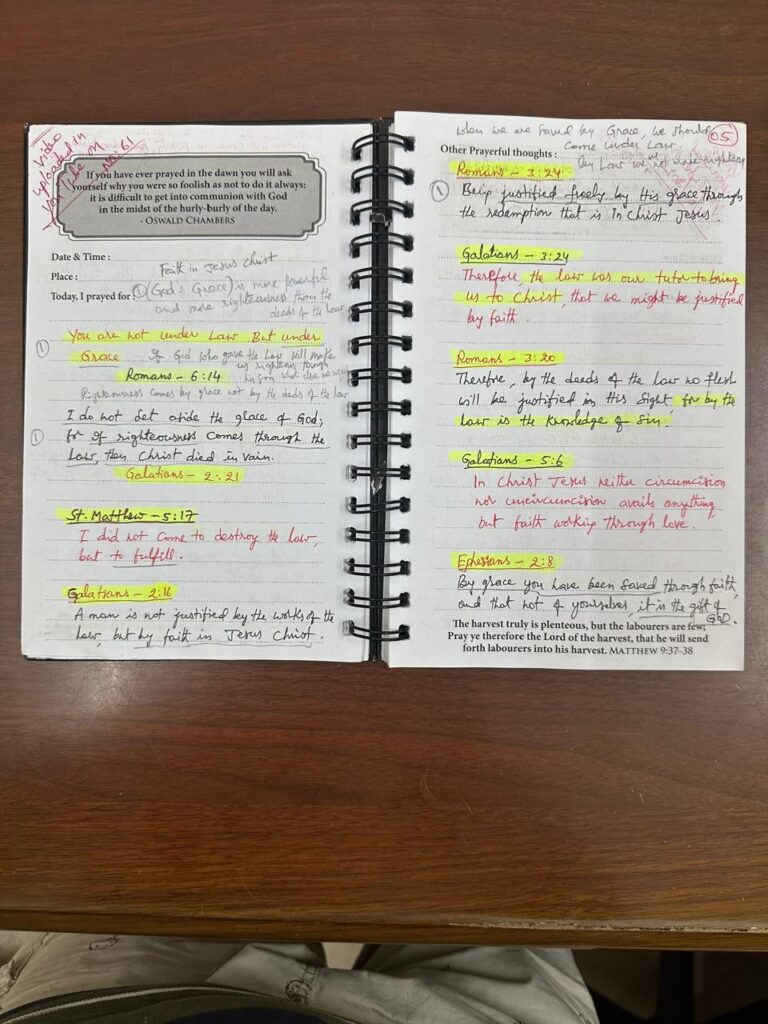 Video
uploaded in
You tube on
No: 61
If you have ever prayed in the dawn you will ask
yourself why you were so foolish as not to do it always:
it is difficult to get into communion with God
in the midst of the hurly-burly of the day.
- OSWALD CHAMBERS
Date & Time :
Faith in Jesus Christ
Place :
Today, I prayed for : ① (God's Grace) is more powerful
and more righteousness than the
deeds of the law
① You are not under Law But under
Grace
If God who gave the law will make
us righteous through
his son
Romans - 6:14
Righteousness comes by grace not by the deeds of the law
I do not set aside the grace of God;
① for if righteousness comes through the
law, then Christ died in vain.
Galatians - 2:21
St. Matthew - 5:17
I did not come to destroy the law,
but to fulfill.
Galatians - 2:16
A man is not justified by the works of the
law, but by faith in Jesus Christ.
when we are saved by Grace, we should
come under Law.
05
Other Prayerful thoughts :
by Law we not more
Romans - 3:24
① Being justified freely by His grace through
the redemption that is in Christ Jesus.
Galatians - 3:24
Therefore, the law was our tutor to bring
us to Christ, that we might be justified
by faith.
Romans - 3:20
Therefore, by the deeds of the Law no flesh
will be justified in His sight, for by the
Law is the knowledge of Sin.
Galatians - 5:6
In Christ Jesus neither circumcision
nor uncircumcision avails anything,
but faith working through love.
Ephesians - 2:8
By grace you have been saved through faith,
and that not of yourselves, it is the gift of
GOD.
The harvest truly is plenteous, but the labourers are few;
Pray ye therefore the Lord of the harvest, that he will send
forth labourers into his harvest. MATTHEW 9:37-38